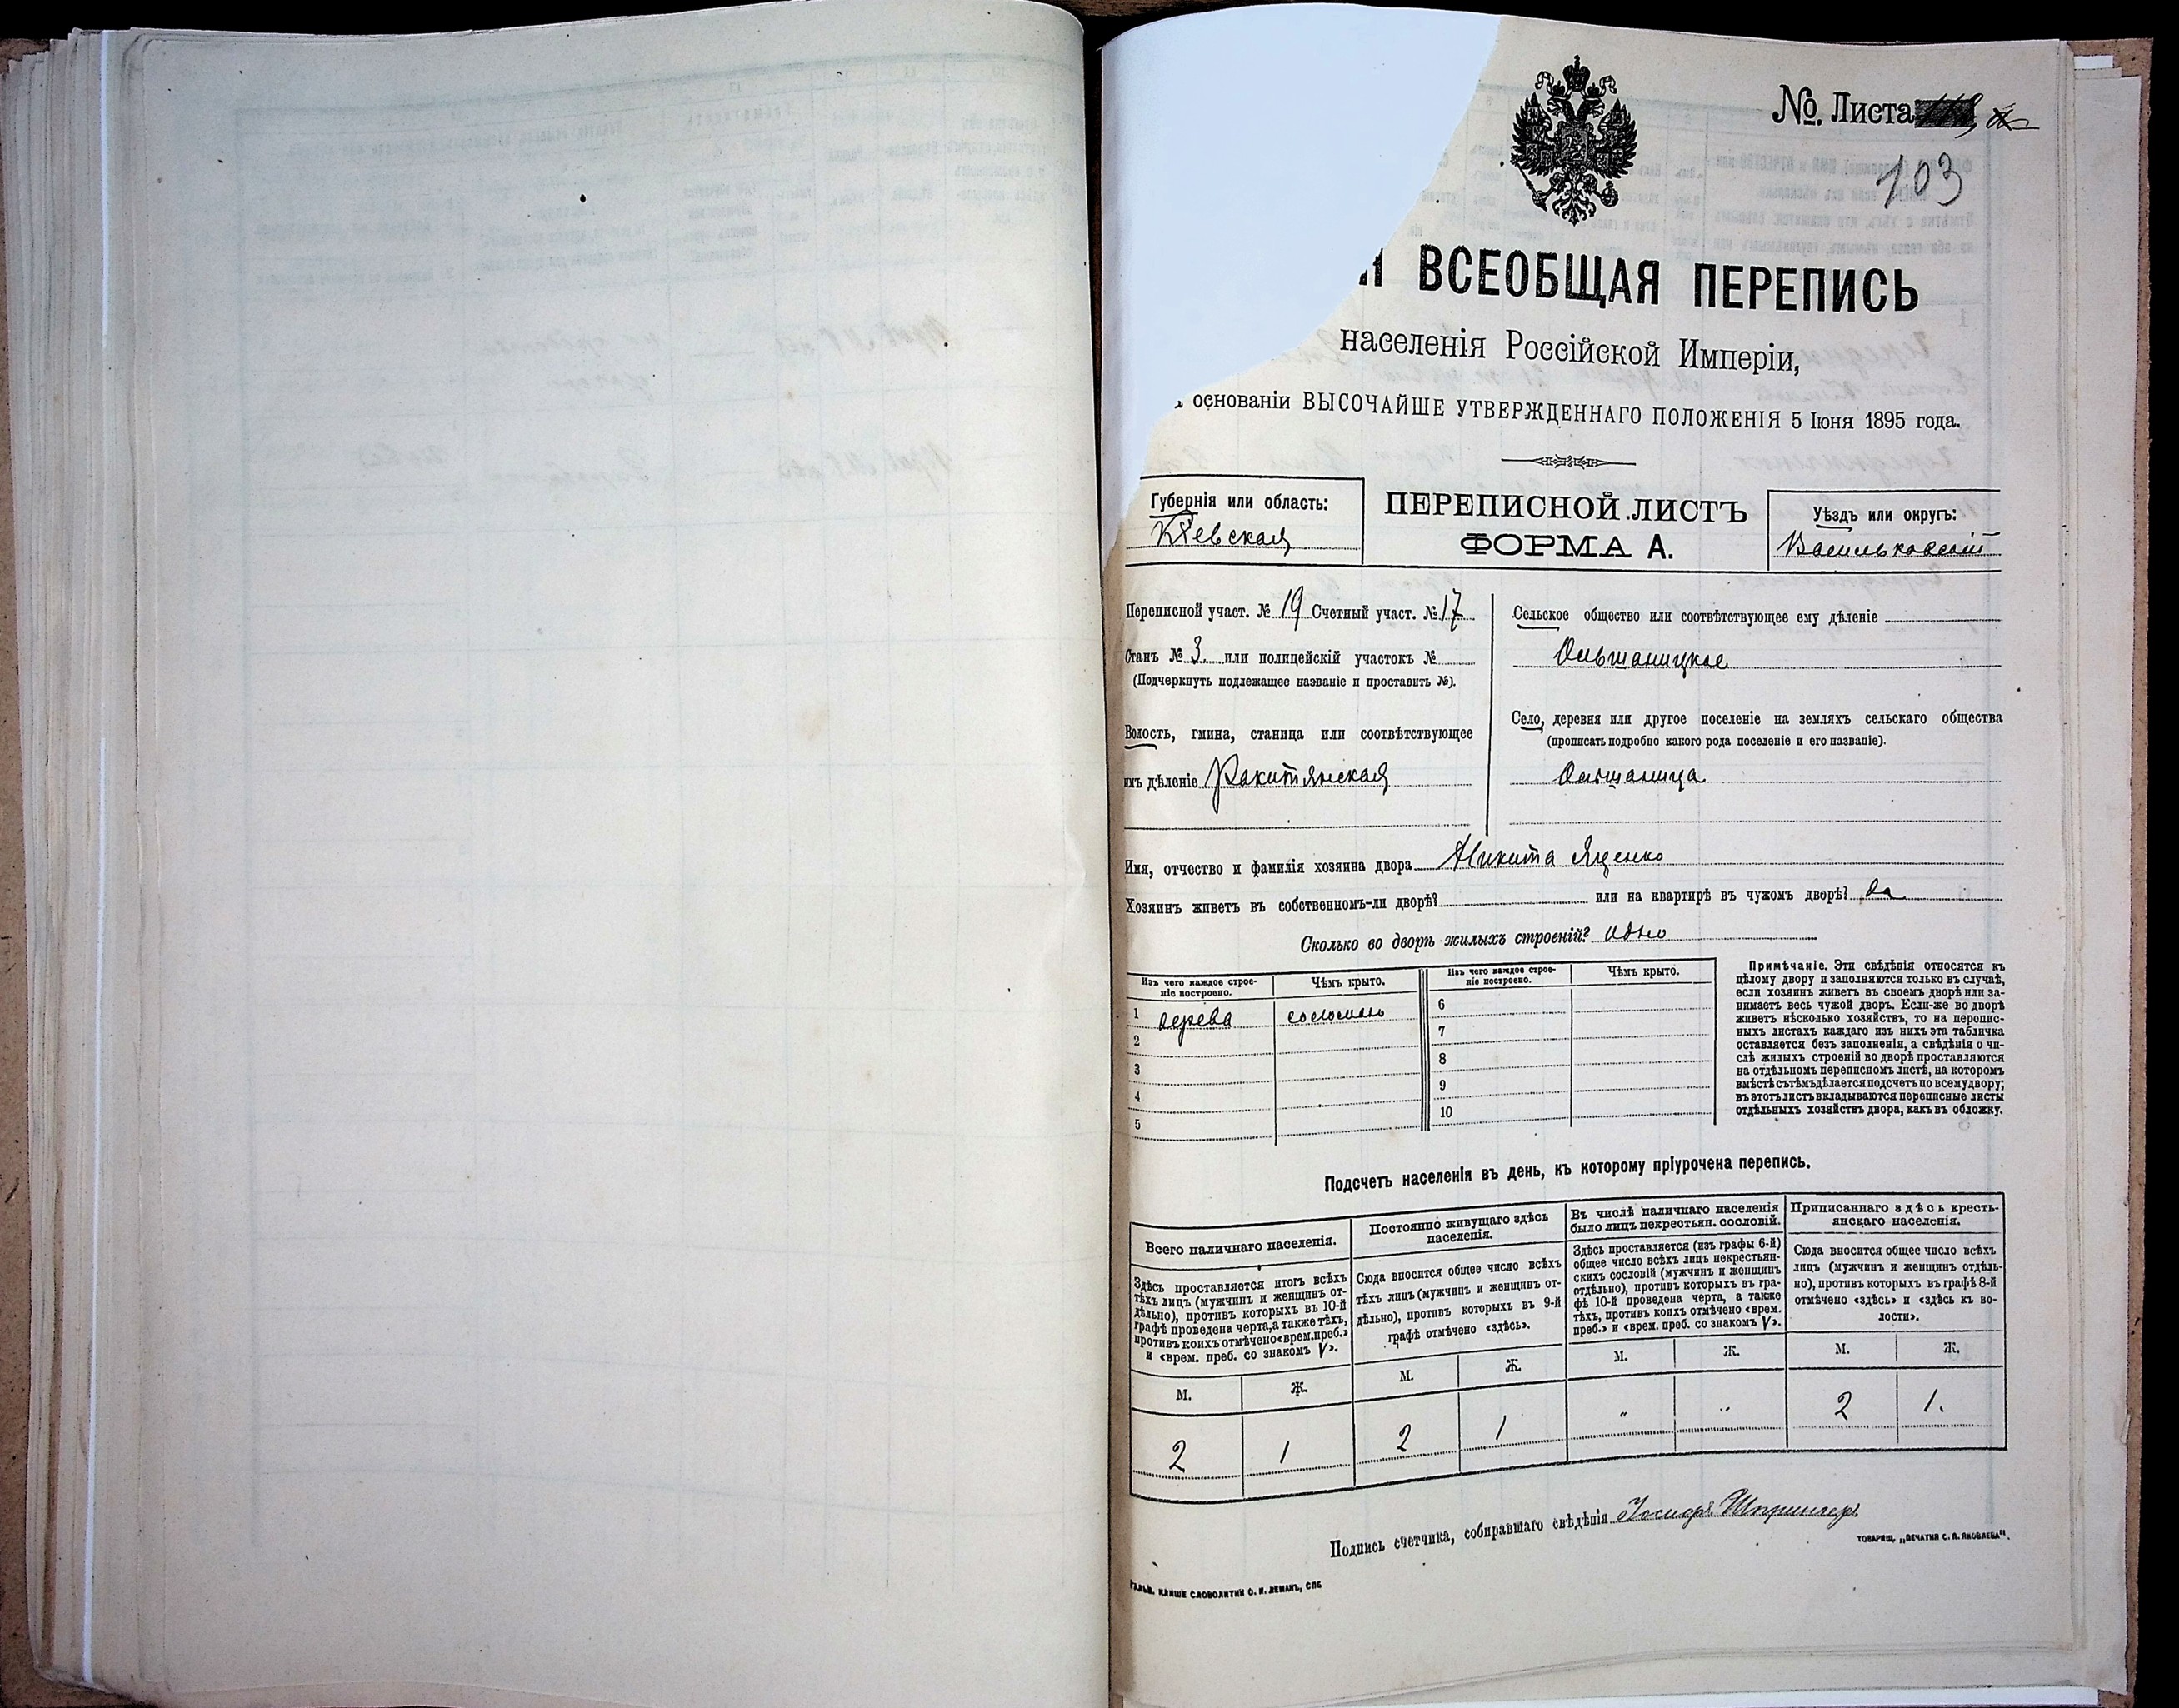 №. Листа
103
ВСЕОБЩАЯ ПЕРЕПИСЬ
населенія Россійской Имперіи,
основаніи ВЫСОЧАЙШЕ УТВЕРЖДЕННАГО ПОЛОЖЕНІЯ 5 Іюня 1895 года.
Губернія или область:
Кіевская
ПЕРЕПИСНОЙ ЛИСТЪ
ФОРМА А.
Уѣздъ или округъ:
Васильковскій
Переписной участ. № 19 Счетный участ. № 17
Станъ № 3 или полицейскій участокъ №
(Подчеркнуть подлежащее названіе и проставить №).
Волость, гмина, станица или соотвѣтствующее
имъ дѣленіе Ракитянская
Сельское общество или соотвѣтствующее ему дѣленіе
Ольшаницкое
Село, деревня или другое поселеніе на земляхъ сельскаго общества
(прописать подробно какого рода поселеніе и его названіе).
Ольшаница
Имя, отчество и фамилія хозяина двора Никита Яценко
Хозяинъ живетъ въ собственномъ-ли дворѣ? или на квартирѣ въ чужомъ дворѣ? да
Сколько во дворѣ жилыхъ строеній? одно
Изъ чего каждое строе-
ніе построено.
Чѣмъ крыто.
Изъ чего каждое строе-
ніе построено.
Чѣмъ крыто.
1 дерева соломою
2
3
4
5
6
7
8
9
10
Примѣчаніе. Эти свѣдѣнія относятся къ
цѣлому двору и заполняются только въ случаѣ,
если хозяинъ живетъ въ своемъ дворѣ или за-
нимаетъ весь чужой дворъ. Если-же во дворѣ
живетъ нѣсколько хозяйствъ, то на перепис-
ныхъ листахъ каждаго изъ нихъ эта табличка
оставляется безъ заполненія, а свѣдѣнія о чи-
слѣ жилыхъ строеній во дворѣ проставляются
на отдѣльномъ переписномъ листѣ, на которомъ
вмѣстѣ съ тѣмъ дѣлается подсчетъ по всему двору;
въ этотъ листъ вкладываются переписные листы
отдѣльныхъ хозяйствъ двора, какъ въ обложку.
Подсчетъ населенія въ день, къ которому пріурочена перепись.
Всего наличнаго населенія.
Здѣсь проставляется итогъ всѣхъ
тѣхъ лицъ (мужчинъ и женщинъ от-
дѣльно), противъ которыхъ въ 10-й
графѣ проведена черта, а также тѣхъ,
противъ коихъ отмѣчено «врем. преб.»
и «врем. преб. со знакомъ V».
М. Ж.
2 1
Постоянно живущаго здѣсь
населенія.
Сюда вносится общее число всѣхъ
тѣхъ лицъ (мужчинъ и женщинъ от-
дѣльно), противъ которыхъ въ 9-й
графѣ отмѣчено «здѣсь».
М. Ж.
2 1
Въ числѣ наличнаго населенія
было лицъ некрестьян. сословій.
Здѣсь проставляется (изъ графы 6-й)
общее число всѣхъ лицъ некрестьян-
скихъ сословій (мужчинъ и женщинъ
отдѣльно), противъ которыхъ въ гра-
фѣ 10-й проведена черта, а также
тѣхъ, противъ коихъ отмѣчено «врем.
преб.» и «врем. преб. со знакомъ V».
М. Ж.
" "
Приписаннаго здѣсь кресть-
янскаго населенія.
Сюда вносится общее число всѣхъ
лицъ (мужчинъ и женщинъ отдѣль-
но), противъ которыхъ въ графѣ 8-й
отмѣчено «здѣсь» и «здѣсь къ во-
лости».
М. Ж.
2 1.
Подпись счетчика, собиравшаго свѣдѣнія Іосифъ Шпрингеръ
ТОВАРИЩ. „ПЕЧАТНЯ С. П. ЯКОВЛЕВА".
КЛИШЕ СЛОВОЛИТНИ О. И. ЛЕМАНЪ, СПБ